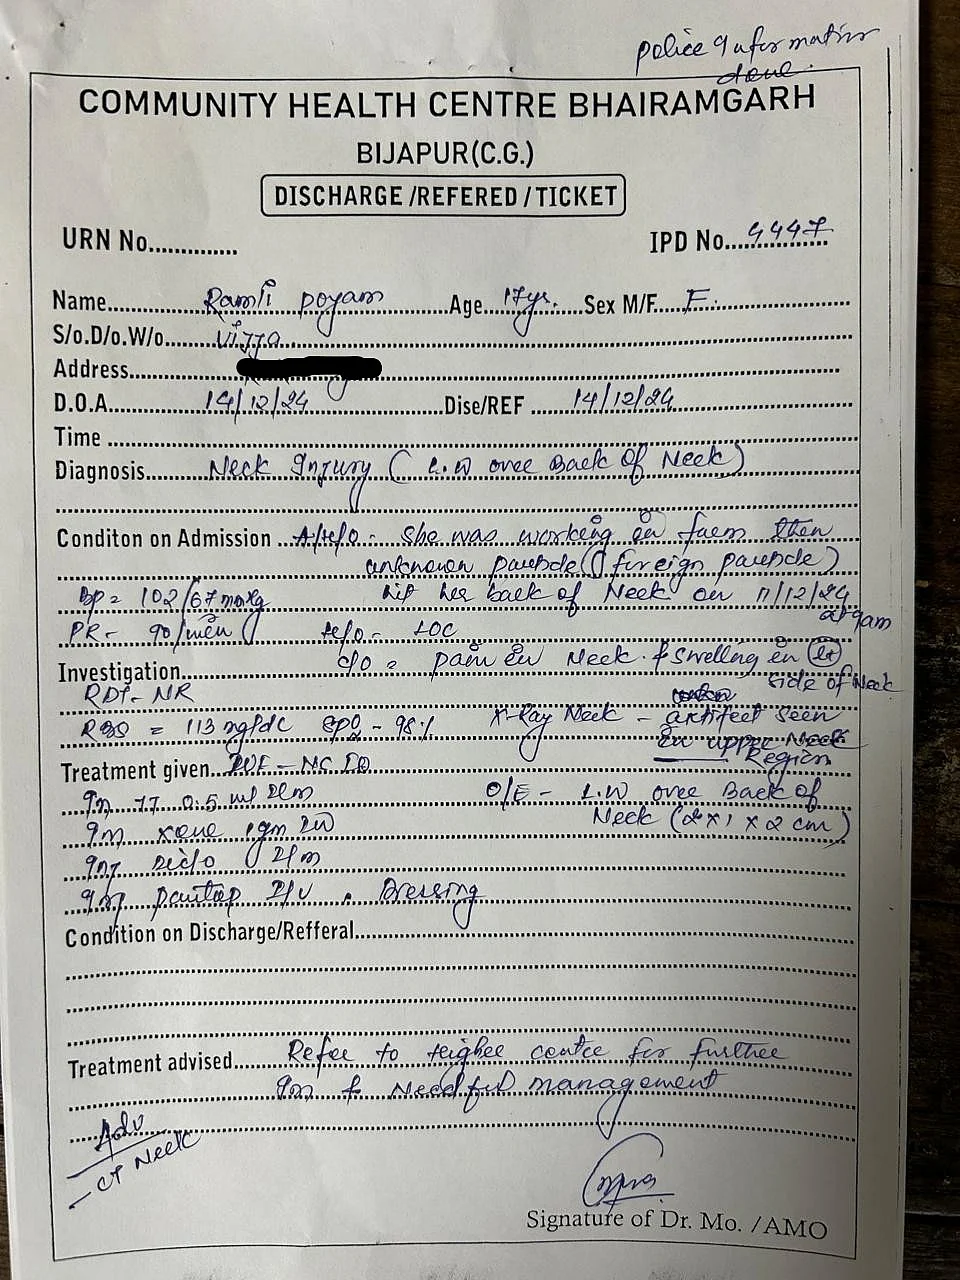 police Information
done.
COMMUNITY HEALTH CENTRE BHAIRAMGARH
BIJAPUR(C.G.)
DISCHARGE /REFERED / TICKET
URN No.............. IPD No....4447
Name........Ramli poyam.......Age....17yrs.....Sex M/F....F
S/o.D/o.W/o.......Vijja
Address
D.O.A..........14/12/24..........Dise/REF......14/12/24
Time
Diagnosis......Neck Injury ( L.W over Back of Neck)
Conditon on Admission...A/H/O - She was working in farm then
unknown particle ( foreign particle)
BP = 102/67 mmHg hit her back of Neck on 11/12/24
at 9am
PR - 90/min H/O - LOC
Investigation c/o = pain in Neck & Swelling in Lt
side of Neck
RDT - NR
RBS = 113 mg/dc SPO2 - 98% X-Ray Neck - artifect seen
in upper Neck
Region
Treatment given...IVF - NS
Inj TT 0.5 ml Im O/E - L.W over Back of
Neck (2 x 1 x 2 cm)
Inj xone 1gm IV
Inj Diclo Im
Inj pantop I/V . Dressing
Condition on Discharge/Refferal
Treatment advised......Refer to Higher centre for further
Ix & Needful management
Adv
- CT Neck
Signature of Dr. Mo. /AMO